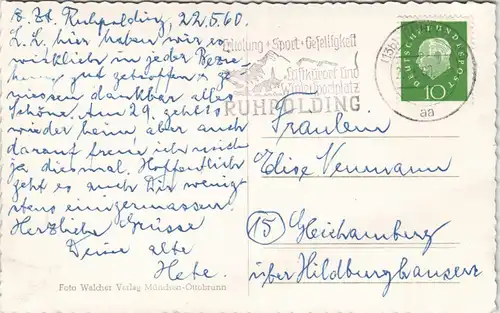 z. Zt. Ruhpolding, 22.5.60.
L. L., hier haben wir es
wirklich in jeder Bezie-
hung gut getroffen u. ge-
niessen dankbar alles
Schöne. Am 29. geht's
wieder heim, aber auch
darauf freue ich mich
ja diesmal. Hoffentlich
geht es auch Dir wenig-
stens einigermassen!
Herzliche Grüsse
Deine alte
Hete.
Foto Walcher Verlag München-Ottobrunn
Erholung + Sport + Geselligkeit
Luftkurort und
Wintersportplatz
RUHPOLDING
(13b)
aa
DEUTSCHE BUNDESPOST
10
Fräulein
Elise Neumann
15) Gleichamberg
über Hildburghausen